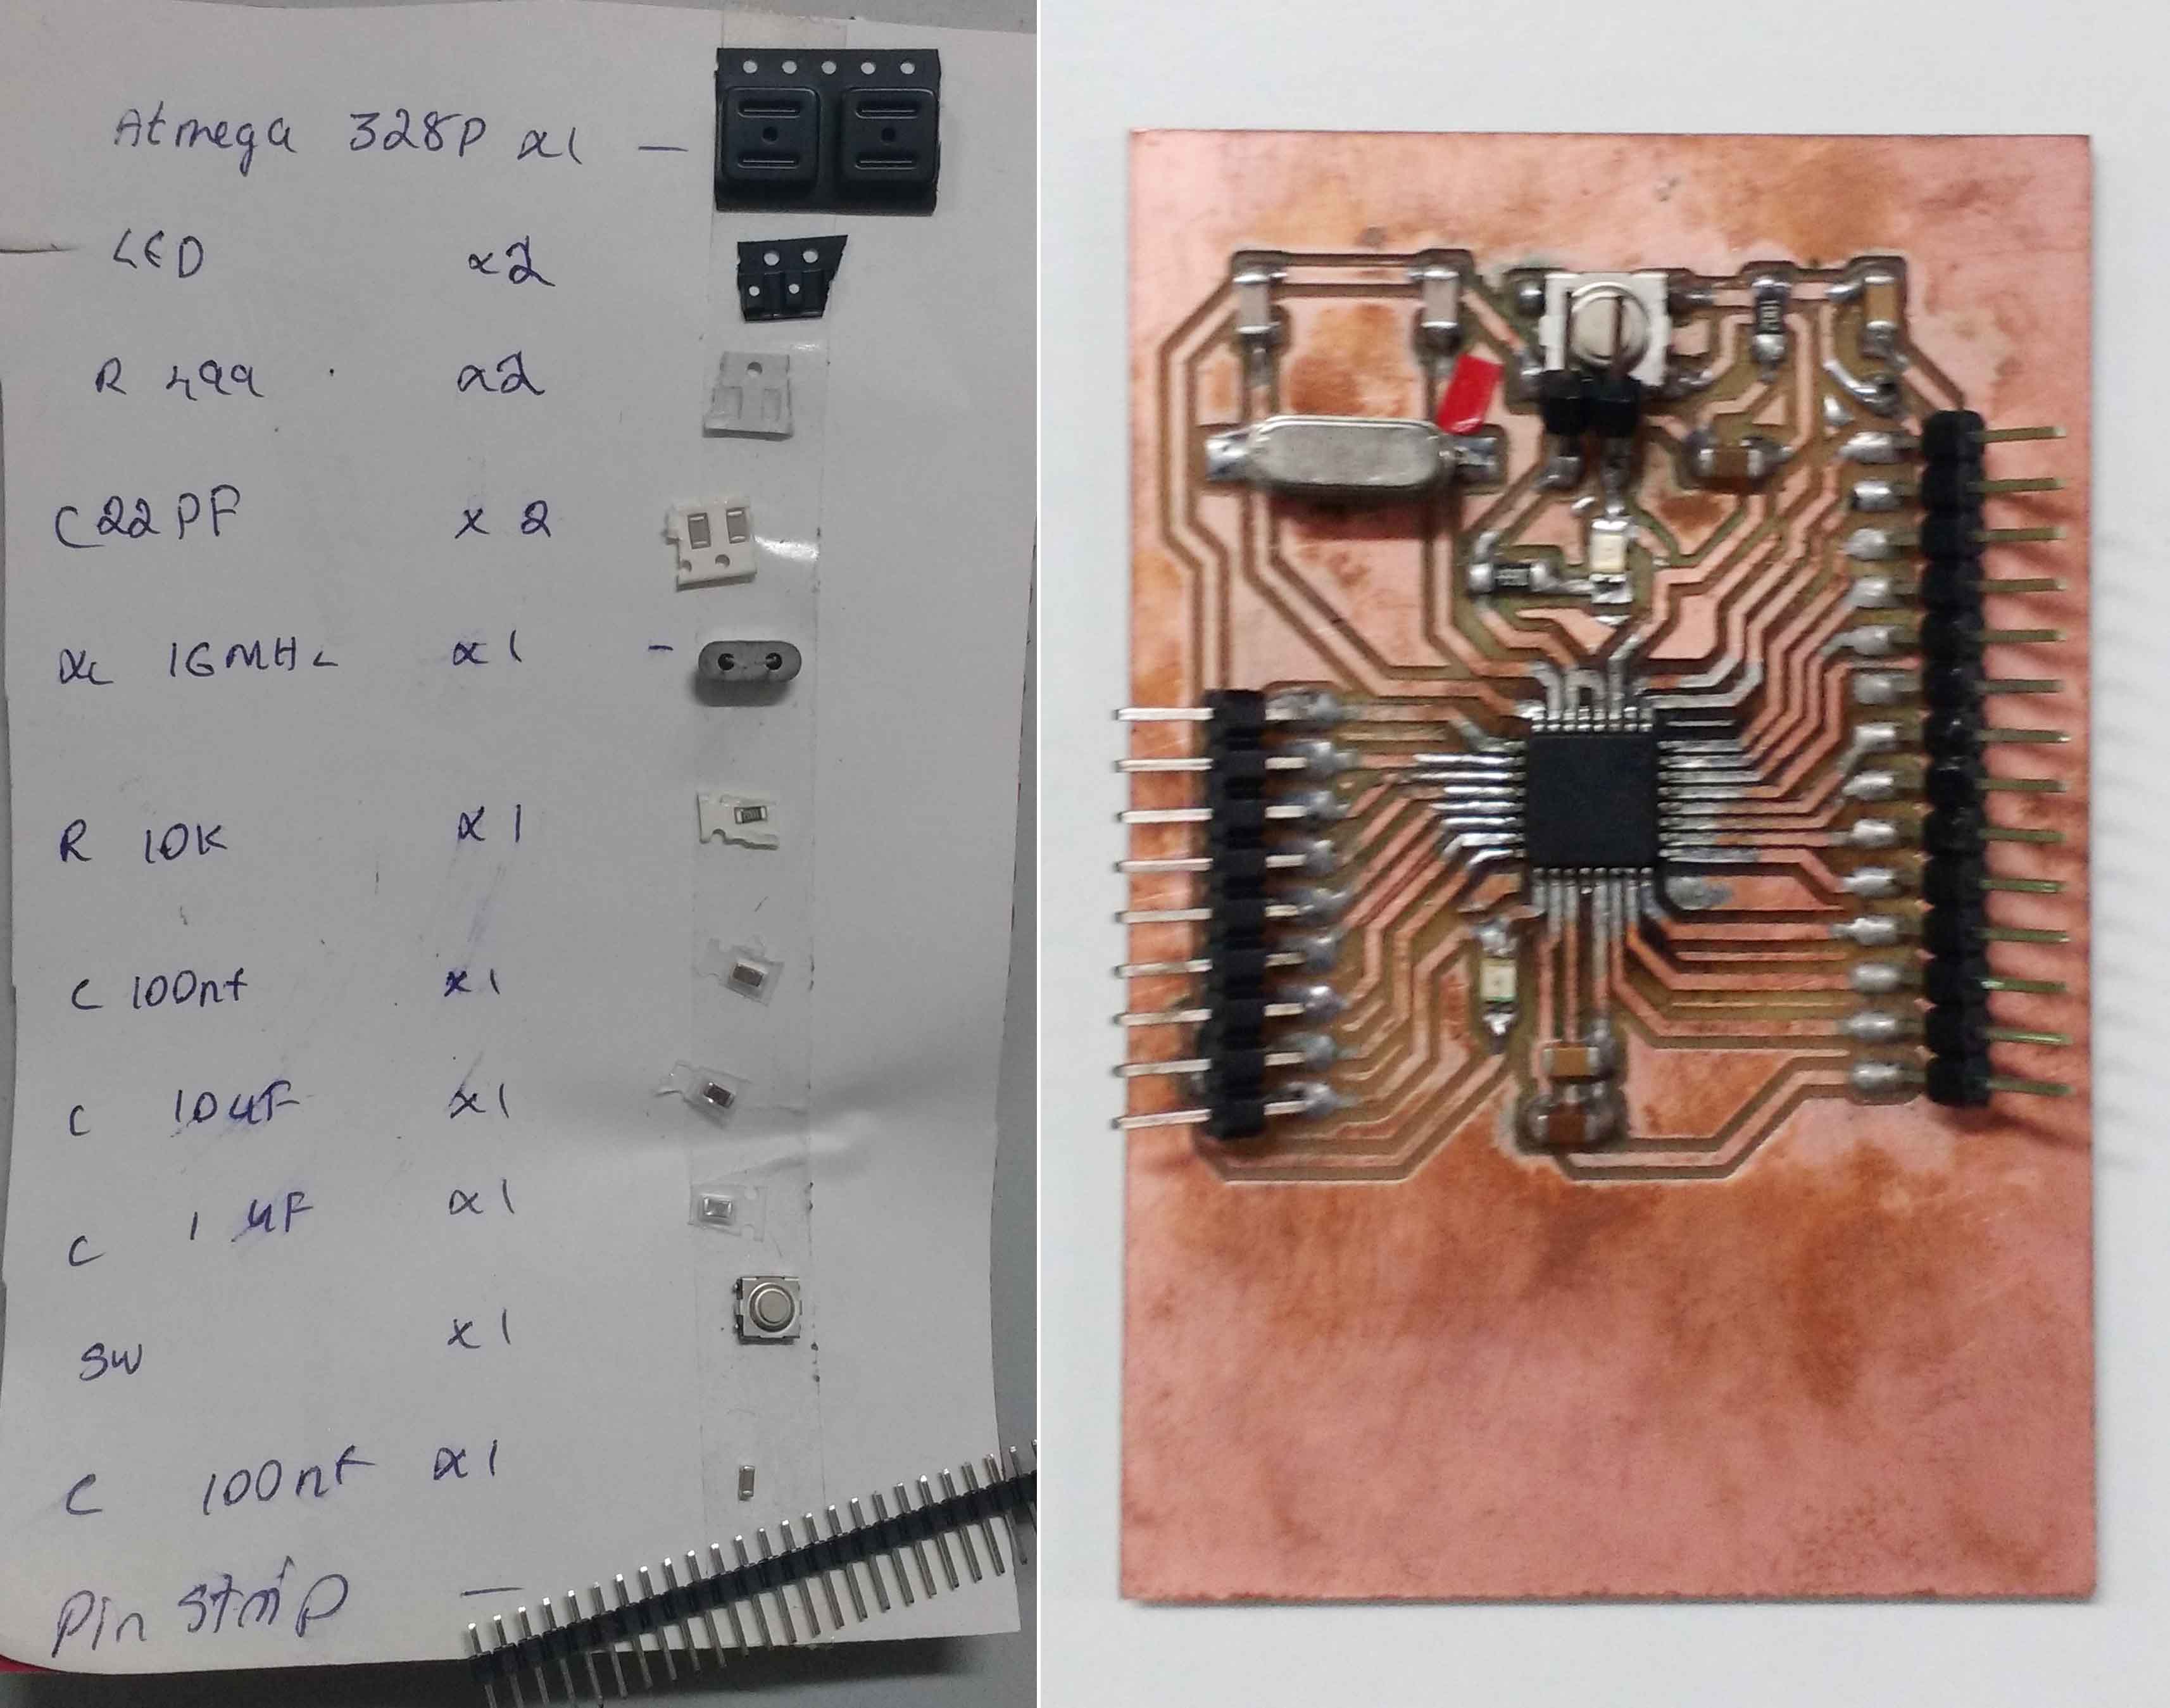 Atmega 328P x1 —
LED x2
R 499 x2
C 22 PF x 2
XL 16MHz x1 -
R 10K x1
C 100nf x1
C 10uF x1
C 1 uF x1
SW x1
C 100nf x1
Pin Strip —